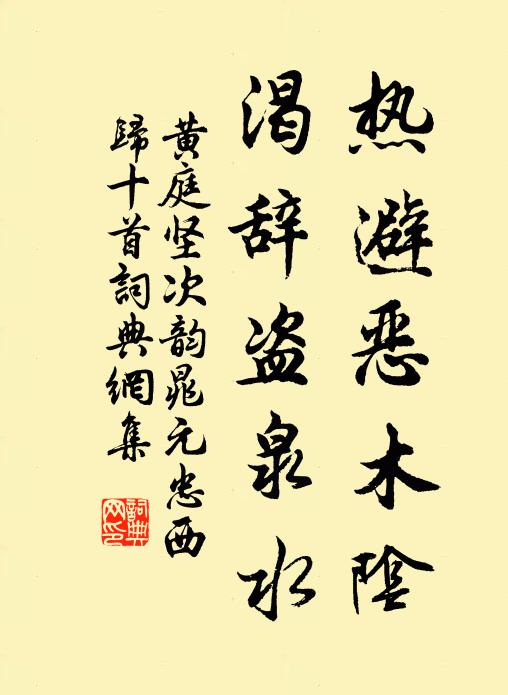 热避恶木陰
渴辞盗泉水
黄庭坚次韵晁元忠西
歸十首詞典網集
詞典网印